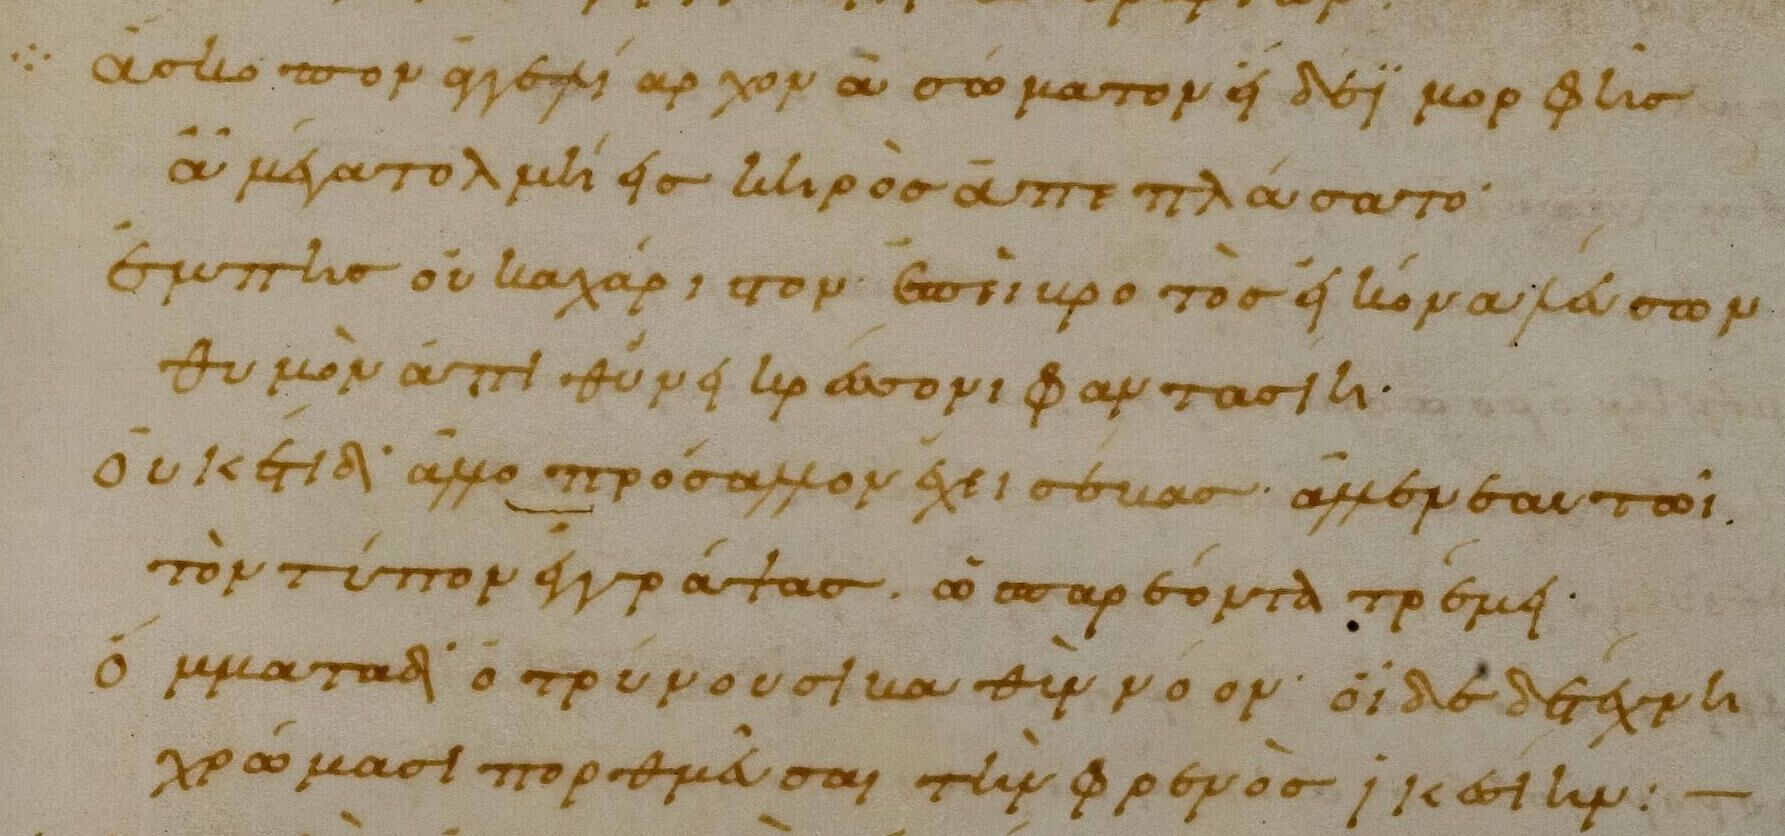 ἄσκοπον ἀγγελίαρχον ἀσώματον εἴδεϊ μορφῆς
ἆ μέγα τολμήεις κηρὸς ἀπεπλάσατο·
ἔμπης οὐκ ἀχάριτον· ἐπεὶ βροτὸς εἰκόνα λεύσων
θυμὸν ἀπιθύνει κρέσσονι φαντασίη·
οὐκέτι δ' ἀλλοπρόσαλλον ἔχει σέβας· ἀλλ' ἐν ἑαυτῶι
τὸν τύπον ἐγγράψας. ὡς παρεόντα τρέμει·
ὄμματα δ' ὀτρύνουσι βαθὺν νόον· οἶδε δὲ τέχνη
χρώμασι πορθμεῦσαι τὴν φρενὸς ἱκεσίην: —